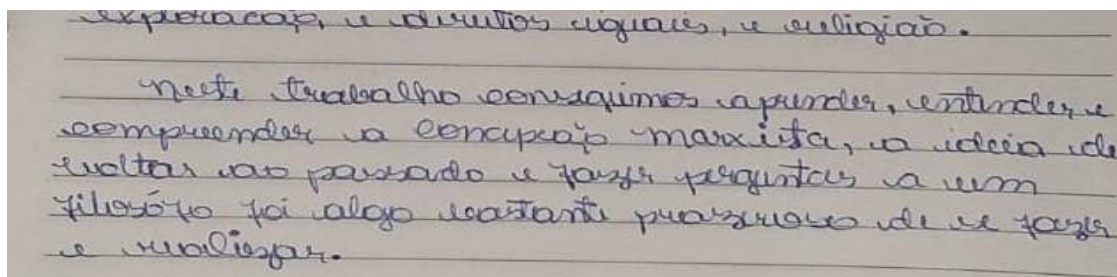 exploracao, e direitos iguais, e religião.
neste trabalho conseguimos aprender, entender e
compreender a concepção marxista, a ideia de
voltar ao passado e fazer perguntas a um
filosófo foi algo bastante prazeroso de se fazer
e realizar.